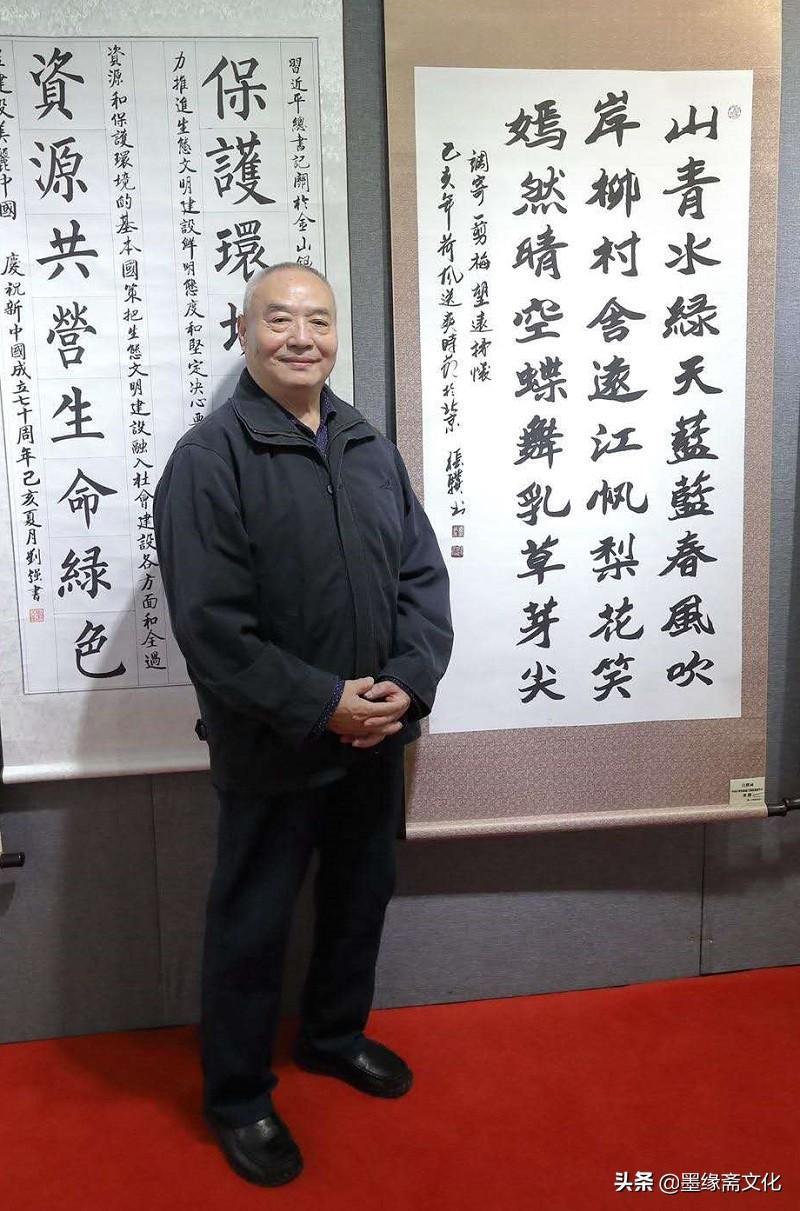 山青水緑天藍藍春風吹
岸柳村舍遠江帆梨花笑
嫣然晴空蝶舞乳草芽尖
調寄一剪梅望遠抒懷
己亥年荷風送爽時節於北京 張騰書
習近平總書記關於金山銀
保護環境
力推進生態文明建設鮮明態度和堅定决心要
資源和保護環境的基本國策把生態文明建設融入社會建設各方面和全過
資源共營生命緑色
建設美麗中國 慶祝新中國成立七十周年己亥夏月劉强書
头条 @墨缘斋文化